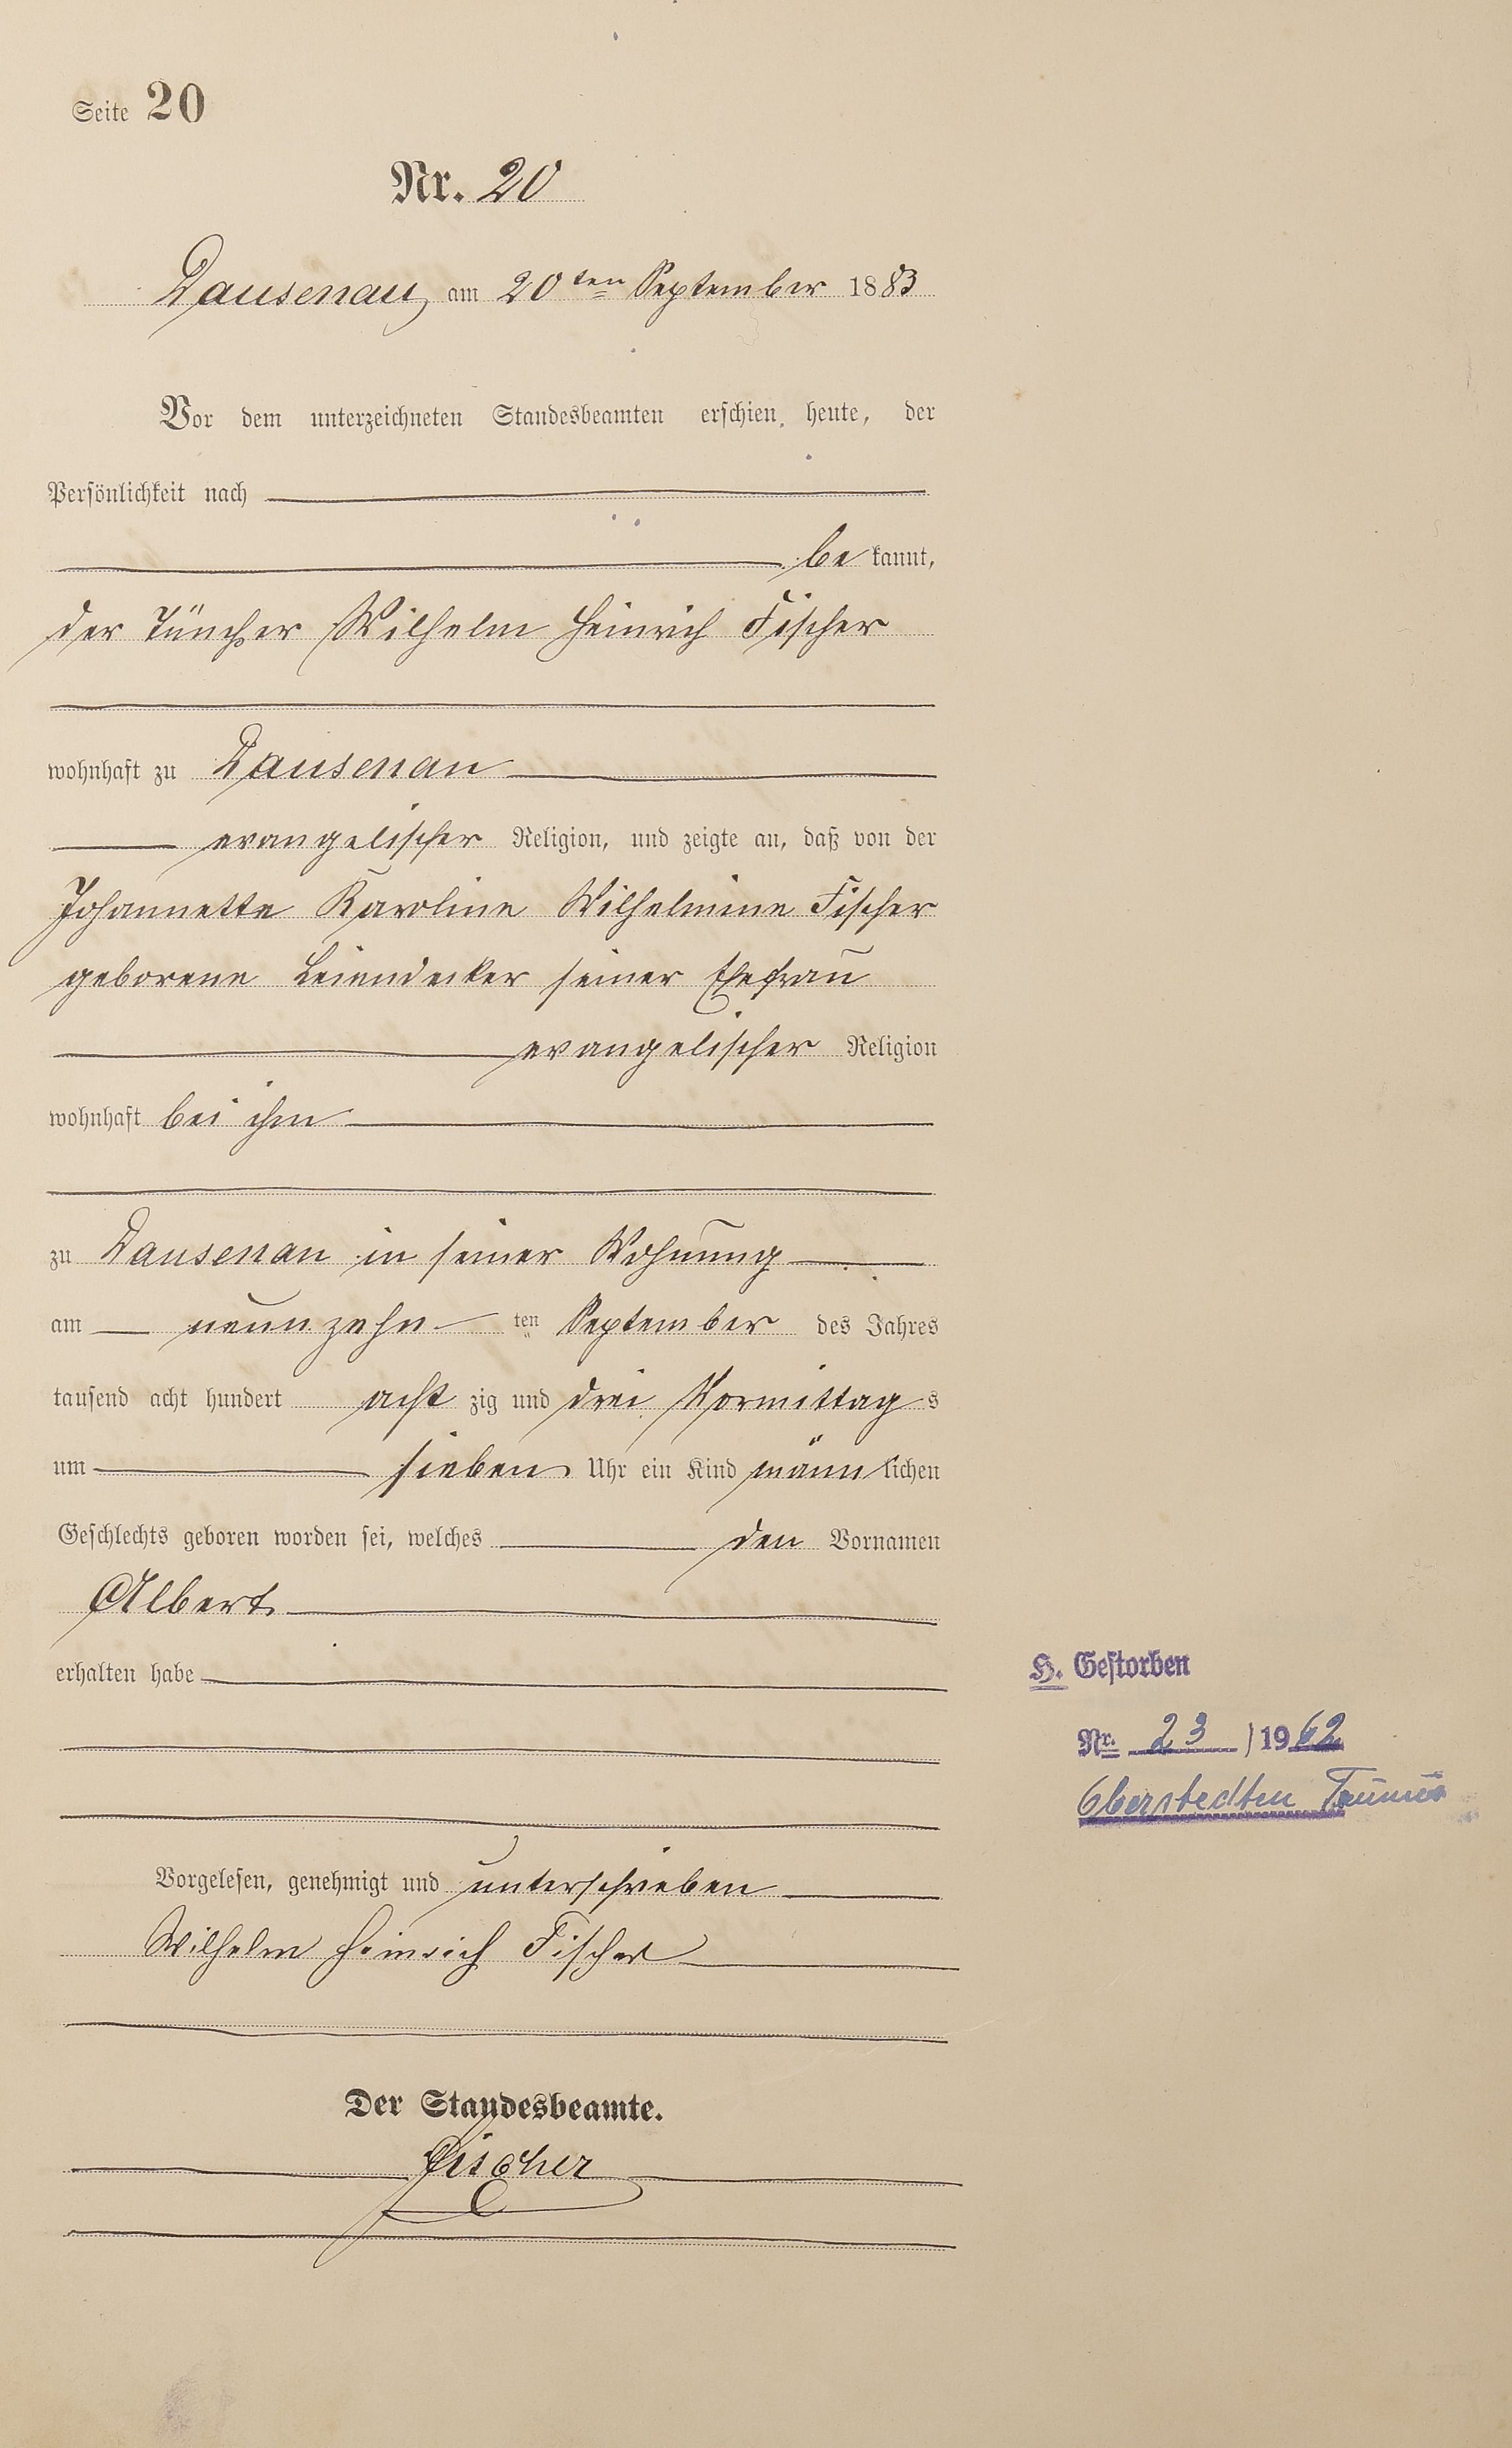 Seite 20
Nr. 20
Dausenau, am 20ten September 1883
Vor dem unterzeichneten Standesbeamten erschien heute, der
Persönlichkeit nach
be kannt,
der Tüncher Wilhelm Heinrich Fischer
wohnhaft zu Dausenau
evangelischer Religion, und zeigte an, daß von der
Johannette Karoline Wilhelmine Fischer
geborene Leiendecker seiner Ehefrau
evangelischer Religion
wohnhaft bei ihm
zu Dausenau in seiner Wohnung
am neunzehn ten September des Jahres
tausend acht hundert acht zig und drei Vormittag s
um sieben Uhr ein Kind männ lichen
Geschlechts geboren worden sei, welches den Vornamen
Albert
erhalten habe
H. Gestorben
Nr. 23 / 1962
Oberstedten Taunus
Vorgelesen, genehmigt und unterschrieben
Wilhelm Heinrich Fischer
Der Standesbeamte.
Fischer